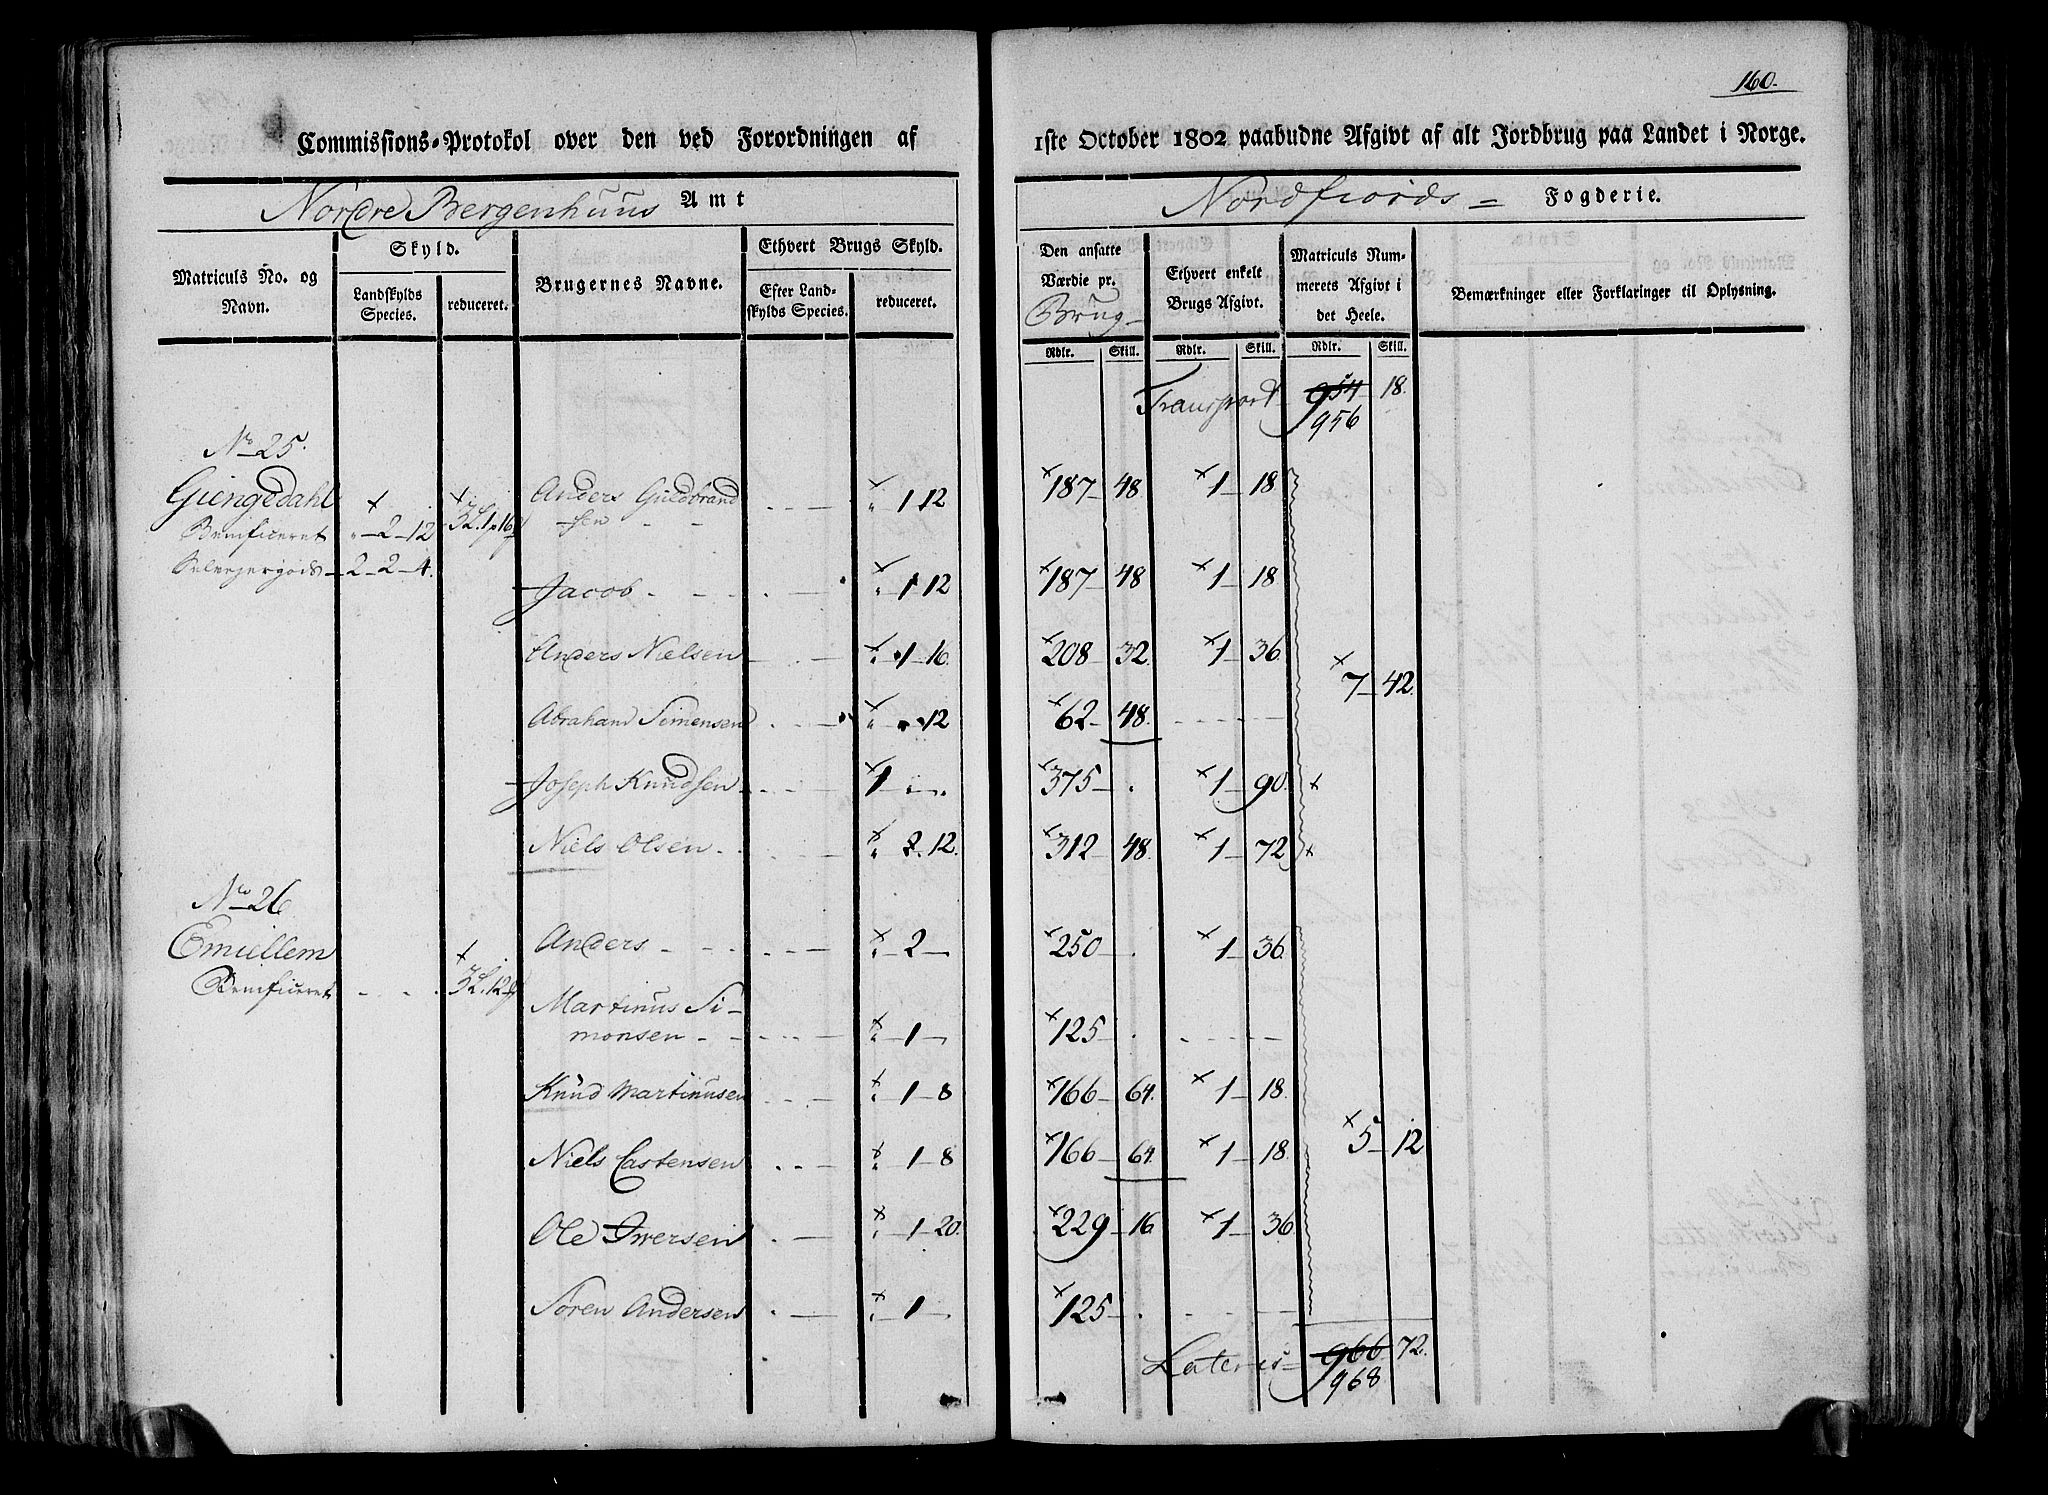 160.
Commissions-Protokol over den ved Forordningen af 1ste October 1802 paabudne Afgivt af alt Jordbrug paa Landet i Norge.
Nordre Bergenhuus Amt
Nordfiords = Fogderie.
Matriculs No. og Navn.
Skyld.
Landskylds Species.
reduceret.
Brugernes Navne.
Ethvert Brugs Skyld.
Efter Landskylds Species.
reduceret.
Den ansatte Værdie pr. Brug
Ethvert enkelt Brugs Afgivt.
Matriculs Nummerets Afgivt i det Heele.
Bemærkninger eller Forklaringer til Oplysning.
Rdlr. Skill. Rdlr. Skill. Rdlr. Skill.
Transport 954 18.
956
No 25.
Giengedahl
Benificeret 2 - 12
Selvejergods 2 - 2 - 4.
Anders Guldbrandsen - 1 12 187 - 48 1 - 18
Jacob - 1 12 187 - 48 1 - 18
Anders Nielsen - 1 - 16. 208 - 32. 1 - 36
7 - 42.
Abraham Simensen 12 62 - 48.
Joseph Knudsen 1 375 - . 1 - 90.
Niels Olsen 2. 12. 312 - 48. 1 - 72
No 26
Emiellem
Benificeret
Anders - 2 - 250 - . 1 - 36
Martinus Simonsen - 1 - 125 - .
Knud Martinusen - 1 - 8 166 - 64. 1 - 18.
5 - 12
Niels Castensen - 1 - 8 166 - 64. 1 - 18.
Ole Iwersen - 1 - 20. 229 - 16 1 - 36
Søren Andersen - 1 - 125 - .
Lateris = 966 72.
968